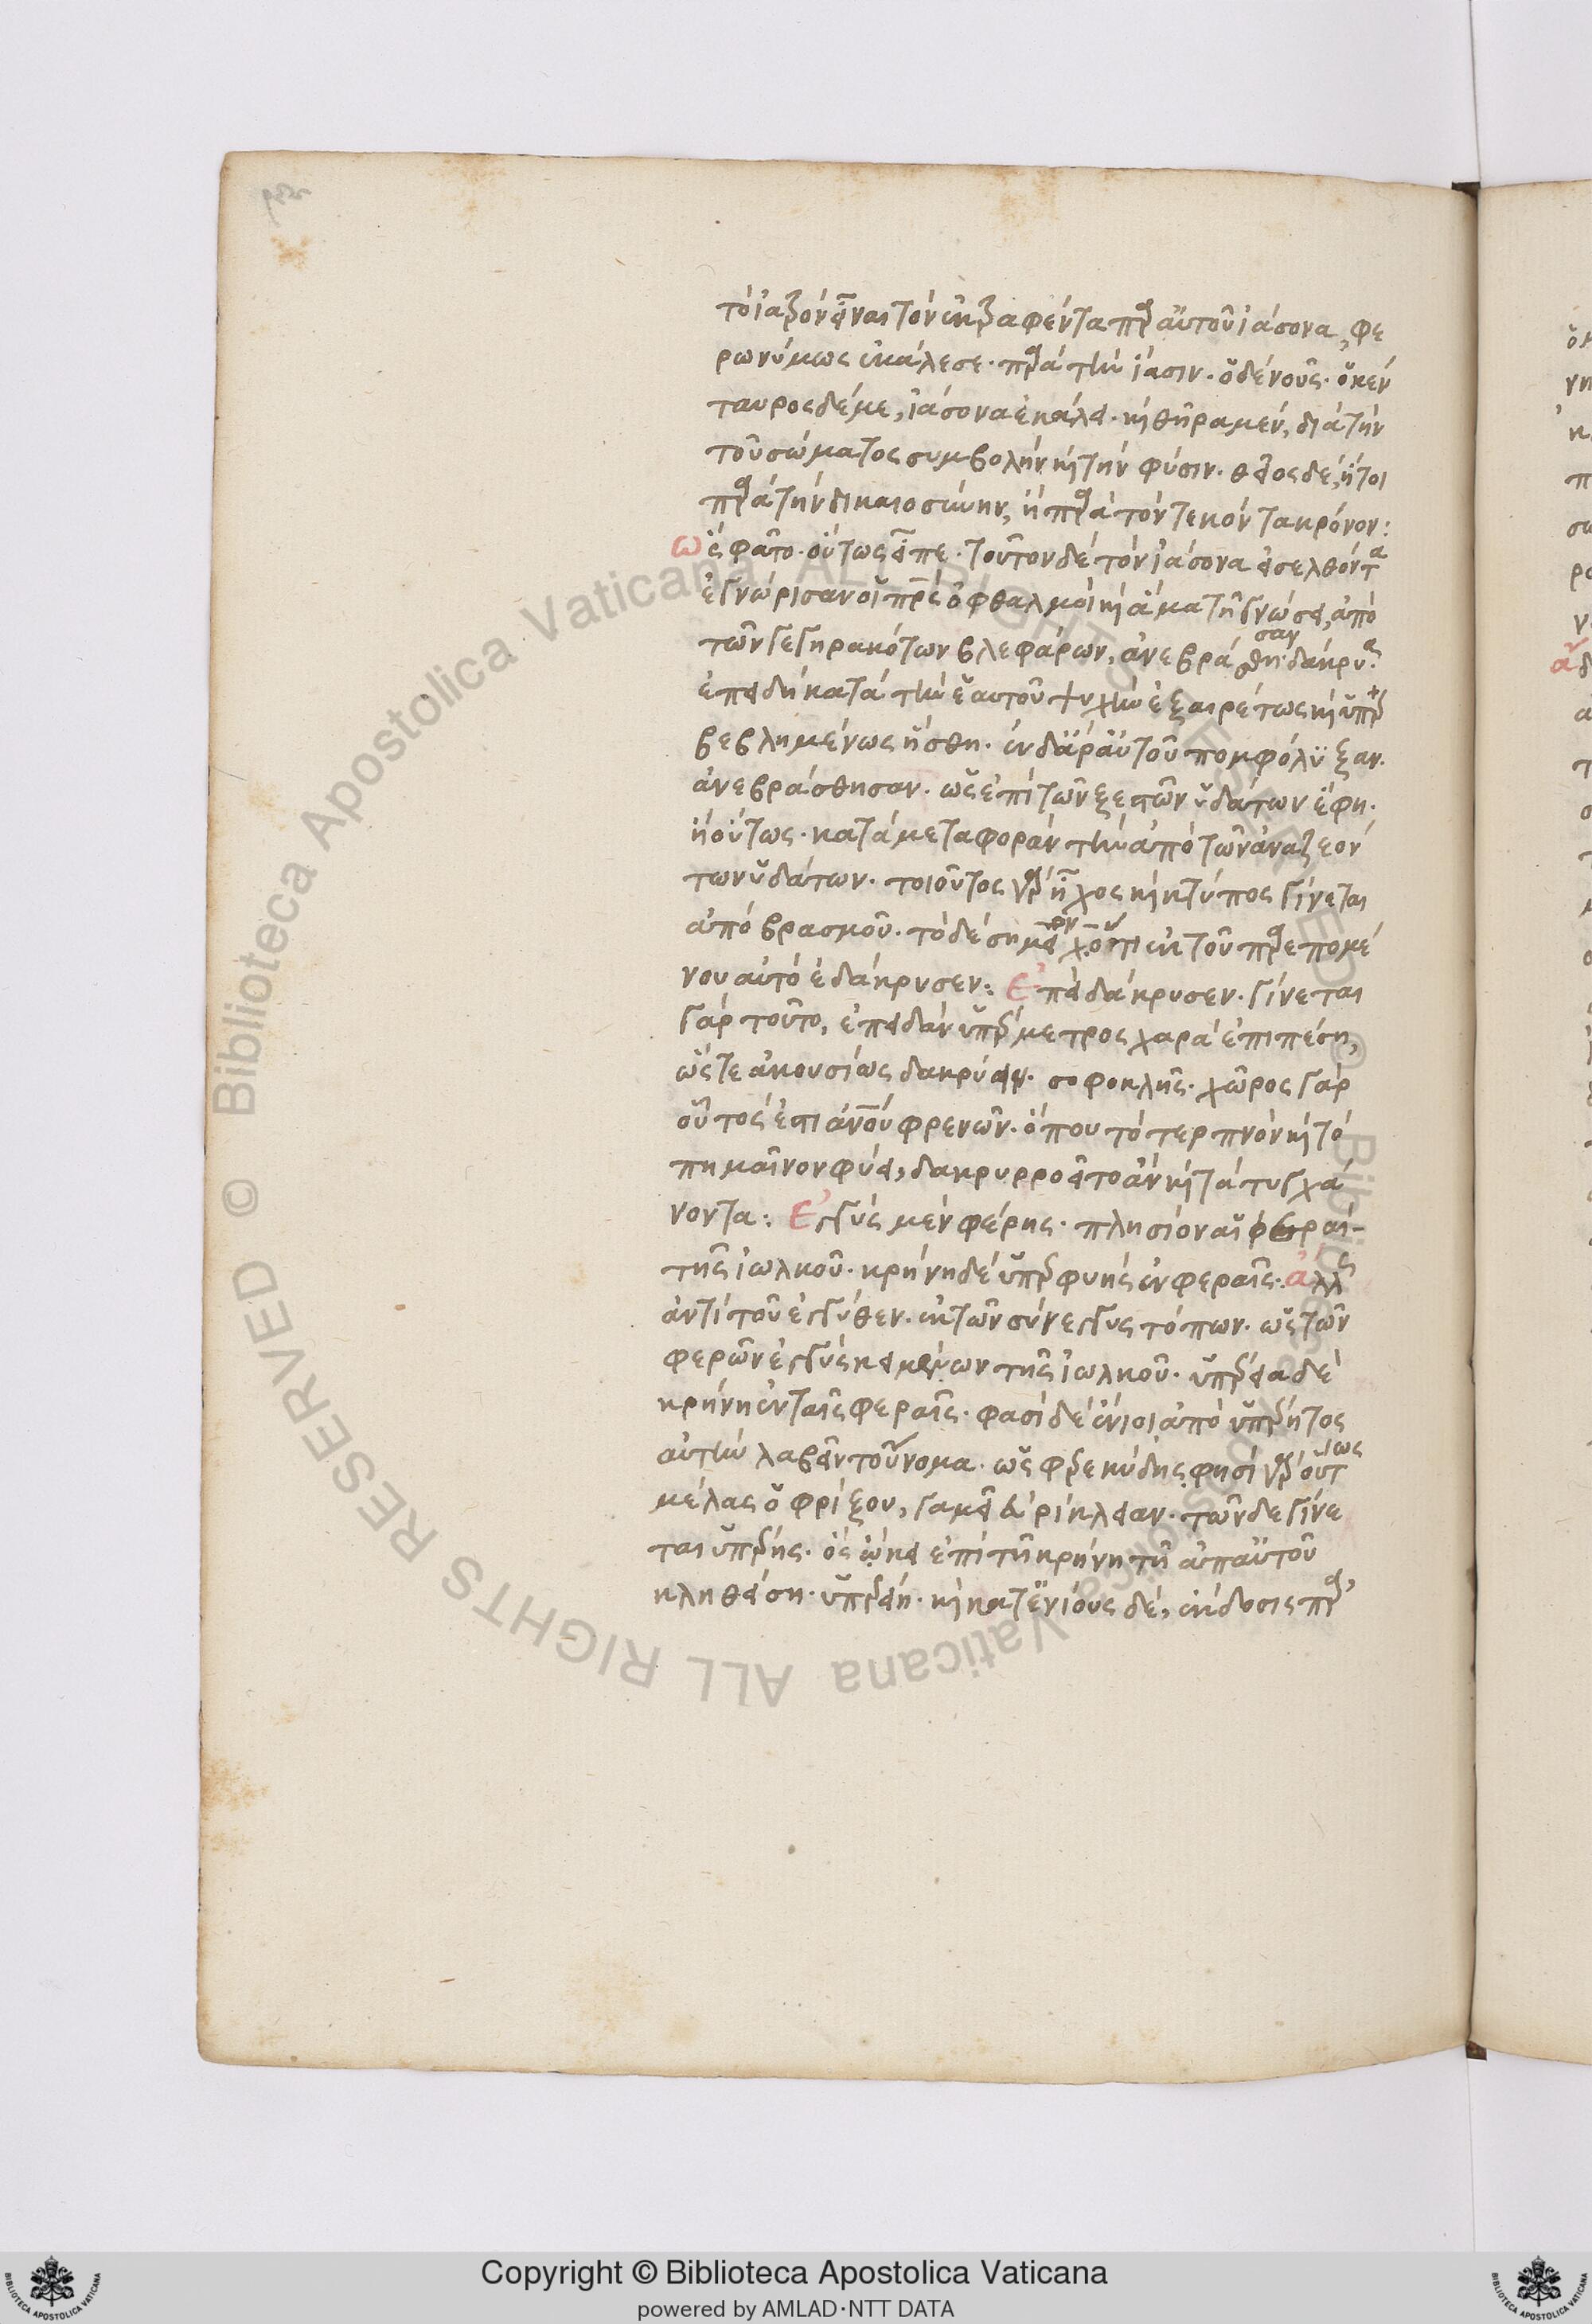 τὸ ἰατρὸν εἶναι τὸν ἐκτραφέντα παρ αὐτοῦ ἰάσονα, φε
ρωνύμως ἐκάλεσε· παρὰ τὴν ἴασιν· ὁ δὲ νοῦς· ὁ κέν
ταυρος δέ με, ἰάσονα ἐκάλει· καὶ θῆρα μὲν, διὰ τὴν
τοῦ σώματος συμβολὴν καὶ τὴν φύσιν· θεῖος δὲ, ἤτοι
παρὰ τὴν δικαιοσύνην, ἢ παρὰ τὸν τεκόντα κρόνον:
ὣς φάτο· οὕτως εἶπε· τοῦτον δὲ τὸν ἰάσονα εἰσελθόντα
ἐγνώρισαν οἱ πρς ὀφθαλμοὶ καὶ ἅμα τῇ γνώσει, ἀπὸ
τῶν γεγηρακότων βλεφάρων, ἀνεβράσθησαν δάκρυα·
ἐπειδὴ κατὰ τὴν ἑαυτοῦ ψυχὴν ἐξαιρέτως καὶ ὑπερ
βεβλημένως ἥσθη· ἐν δ ἄρ αὐτοῦ πομφόλυξαν·
ἀνεβράσθησαν· ὡς ἐπὶ τῶν ζεστῶν ὑδάτων ἔφη·
ἢ οὕτως· κατὰ μεταφορὰν τὴν ἀπὸ τῶν ἀναζεόν
των ὑδάτων· τοιοῦτος γὰρ ἦχος καὶ κτύπος γίνεται
ἀπὸ βρασμοῦ· τὸ δὲ σημεῖον ὅτι ἐκ τοῦ παρεπομέ
νου αὐτὸ ἐδάκρυσεν: ἐπεὶ δάκρυσεν· γίνεται
γὰρ τοῦτο, ἐπειδὰν ὑπέρμετρος χαρὰ ἐπιπέσῃ,
ὥστε ἀκουσίως δακρύειν· σοφοκλῆς· χῶρος γὰρ
οὗτός ἐστι ἀνοῦ φρενῶν· ὅπου τὸ τερπνὸν καὶ τὸ
πημαῖνον φύει, δακρυρροεῖ τὸ ἂν καὶ τὰ τυγχά
νοντα: Ἐγγὺς μὲν φέρης· πλησίον αἱ φεραὶ
τῆς ἰωλκοῦ· κρήνη δὲ ὑπερφυὴς ἐν φεραῖς· ἀλλ
ἀντὶ τοῦ ἐγγύθεν· ἐκ τῶν σύνεγγυς τόπων· ὡς τῶν
φερῶν ἐγγὺς κειμένων τῆς ἰωλκοῦ· ὑπέρεια δὲ
κρήνη ἐν ταῖς φεραῖς· φασὶ δὲ ἔνιοι ἀπὸ ὑπέρητος
αὐτὴν λαβεῖν τοὔνομα· ὡς φερεκύδης φησὶ γὰρ οὕτως
μέλας ὁ φρίξου, γαμεῖ εὐρίκλειαν· τῶν δε γίνε
ται ὑπέρης· ὃς ᾤκει ἐπὶ τῇ κρήνῃ τῇ ἀπ αὐτοῦ
κληθείσῃ· ὑπερείῃ· καὶ κατ ἐνίους δὲ, ἔκδοσις παρ